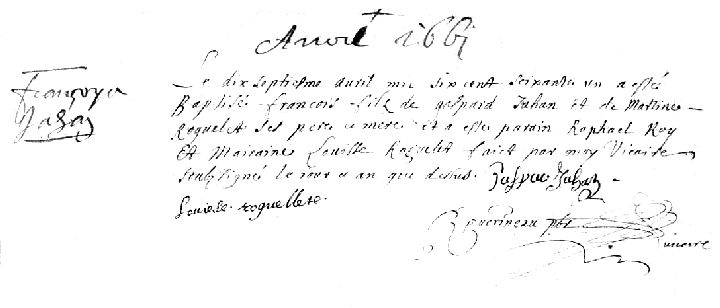 Avril 1661
Françoys
Jahan
Le dix septiesme avril mil six cent soixante un a estés
Baptisé françois filz de gaspard Jahan et de Martine
Roquelet ses pere et mere et a estés parain Raphael Roy
Et Maraine Louisse Raquelet faict par moy Vicaire
soubzsigné le jour et an que dessus. Jaspar Jahan
Louisse roquellete.
guerineau pbr
vicaire